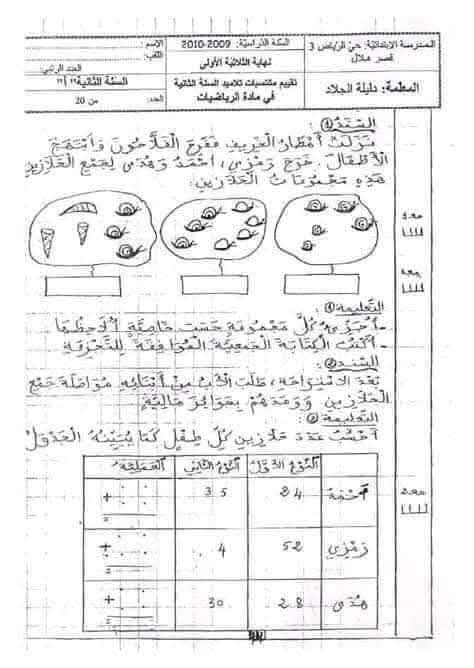 المدرسة الابتدائية: حيّ الرياض 3
قصر هلال
المعلّمة: دليلة الجلاد
السنة الدراسيّة: 2009-2010
نهاية الثلاثيّة الأولى
تقييم مكتسبات تلاميذ السنة الثانية
في مادة الرياضيات
الاسم:
اللقب:
العدد الرتبي:
السنة الثانية "أ"
العدد: من 20
السند ①:
نزلت أمطار الخريف ففرح الفلاحون وابتهج
الأطفال. خرج رمزي، أحمد وهدى لجمع الحلازين
هذه مجموعات الحلازين:
التعليمة ①:
- أجزّئ كلّ مجموعة حسب خاصيّة ألاحظها
- أكتب الكتابة الجمعيّة الموافقة للتجزئة
السند ②:
بعد الاستراحة، طلب الأب من أبنائه مواصلة جمع
الحلازين ووعدهم بجوائز ماليّة
التعليمة ②:
أحسب عدد حلازين كلّ طفل كما يبيّنه الجدول
اليوم الأوّل اليوم الثاني العمليّة
أحمد 24 35 +
رمزي 52 4 +
هدى 28 30 +
مع1
مع2